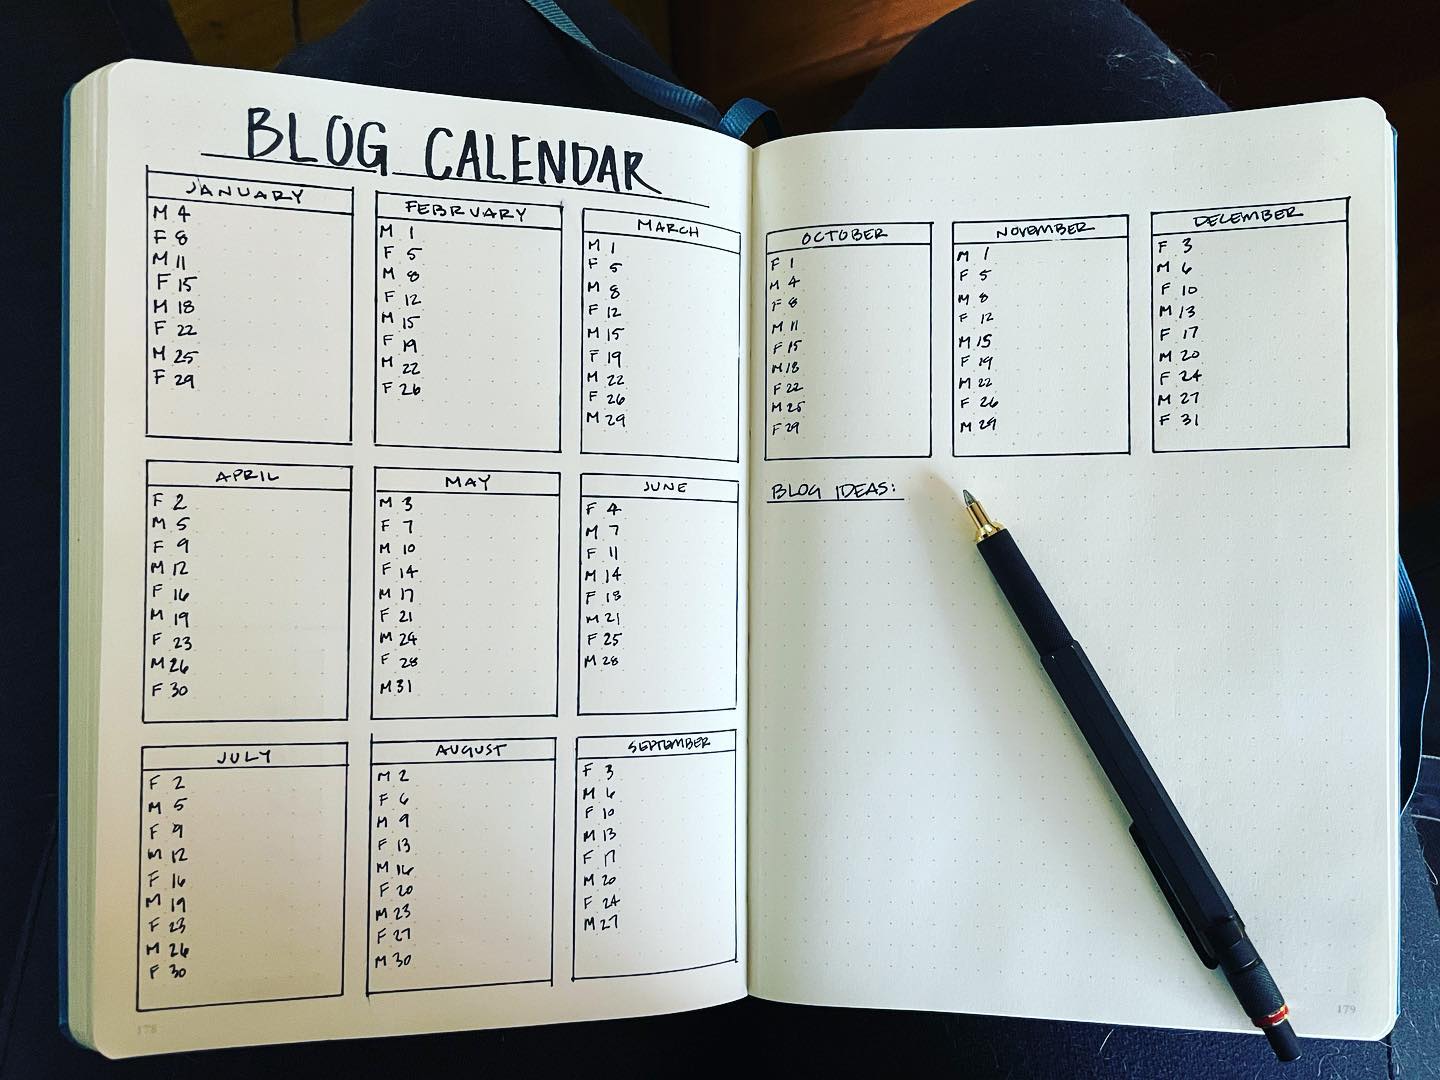 BLOG CALENDAR
JANUARY
M 4
F 8
M 11
F 15
M 18
F 22
M 25
F 29
FEBRUARY
M 1
F 5
M 8
F 12
M 15
F 19
M 22
F 26
MARCH
M 1
F 5
M 8
F 12
M 15
F 19
M 22
F 26
M 29
APRIL
F 2
M 5
F 9
M 12
F 16
M 19
F 23
M 26
F 30
MAY
M 3
F 7
M 10
F 14
M 17
F 21
M 24
F 28
M 31
JUNE
F 4
M 7
F 11
M 14
F 18
M 21
F 25
M 28
JULY
F 2
M 5
F 9
M 12
F 16
M 19
F 23
M 26
F 30
AUGUST
M 2
F 6
M 9
F 13
M 16
F 20
M 23
F 27
M 30
SEPTEMBER
F 3
M 6
F 10
M 13
F 17
M 20
F 24
M 27
178
OCTOBER
F 1
M 4
F 8
M 11
F 15
M 18
F 22
M 25
F 29
NOVEMBER
M 1
F 5
M 8
F 12
M 15
F 19
M 22
F 26
M 29
DECEMBER
F 3
M 6
F 10
M 13
F 17
M 20
F 24
M 27
F 31
BLOG IDEAS:
179